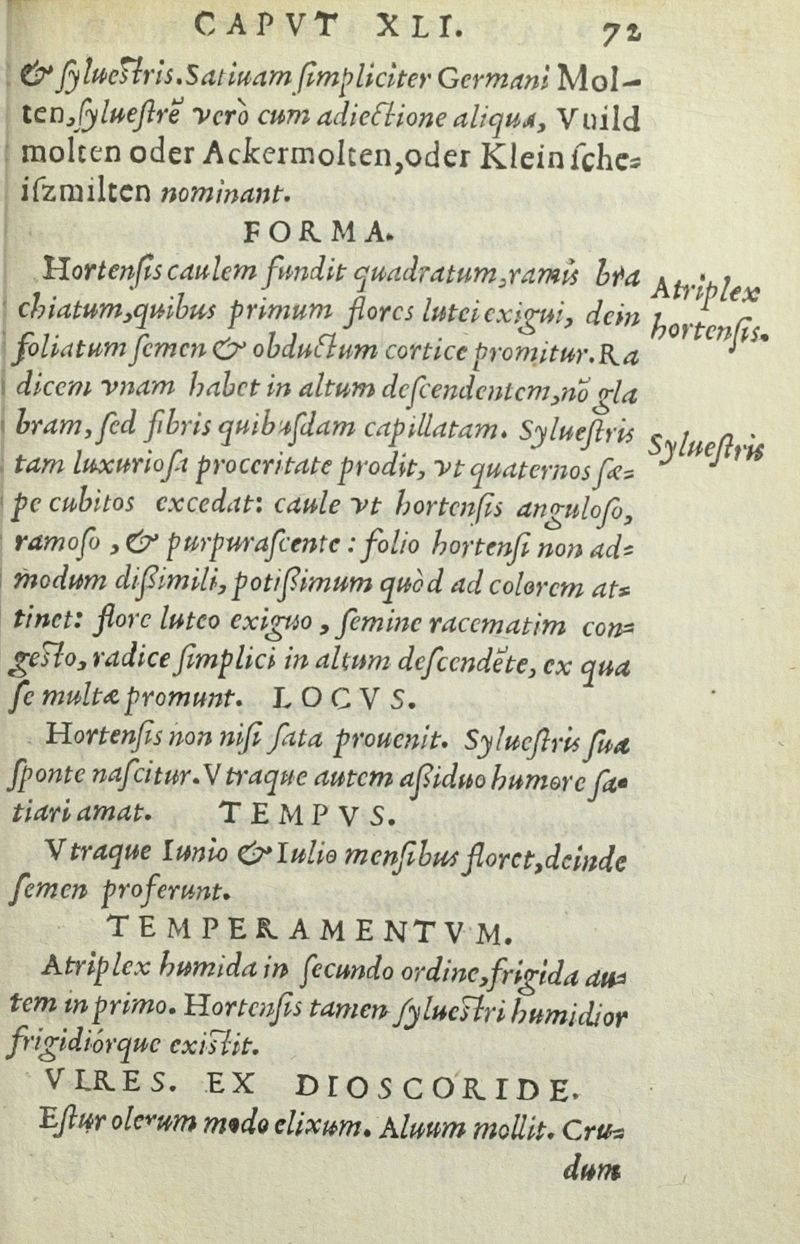 CAPVT XLI. 72
& ſylueſtris. Satiuam ſimpliciter Germani Mol-
ten, ſylueſtrē verò cum adiectione aliqua, Vuild
molten oder Ackermolten, oder Klein ſche=
iſzmilten nominant.
FORMA.
Hortenſis caulem fundit quadratum, ramis bra
Atriplex
hortenſis.
chiatum, quibus primum flores lutei exigui, dein
foliatum ſemen & obductum cortice promitur. Ra
dicem vnam habet in altum deſcendentem, nō gla
bram, ſed fibris quibuſdam capillatam. Sylueſtris
Sylueſtris
tam luxurioſa proceritate prodit, vt quaternos ſæ=
pe cubitos excedat: caule vt hortenſis anguloſo,
ramoſo, & purpuraſcente: folio hortenſi non ad=
modum dißimili, potißimum quòd ad colorem at=
tinet: flore luteo exiguo, ſemine racematim con=
geſto, radice ſimplici in altum deſcendēte, ex qua
ſe multæ promunt. LOCVS.
Hortenſis non niſi ſata prouenit. Sylueſtris ſua
ſponte naſcitur. Vtraque autem aßiduo humore ſa=
tiari amat. TEMPVS.
Vtraque Iunio & Iulio menſibus floret, deinde
ſemen proferunt.
TEMPERAMENTVM.
Atriplex humida in ſecundo ordine, frigida au=
tem in primo. Hortenſis tamen ſylueſtri humidior
frigidiórque exiſtit.
VIRES. EX DIOSCORIDE.
Eſtur olerum modo elixum. Aluum mollit. Cru=
dum